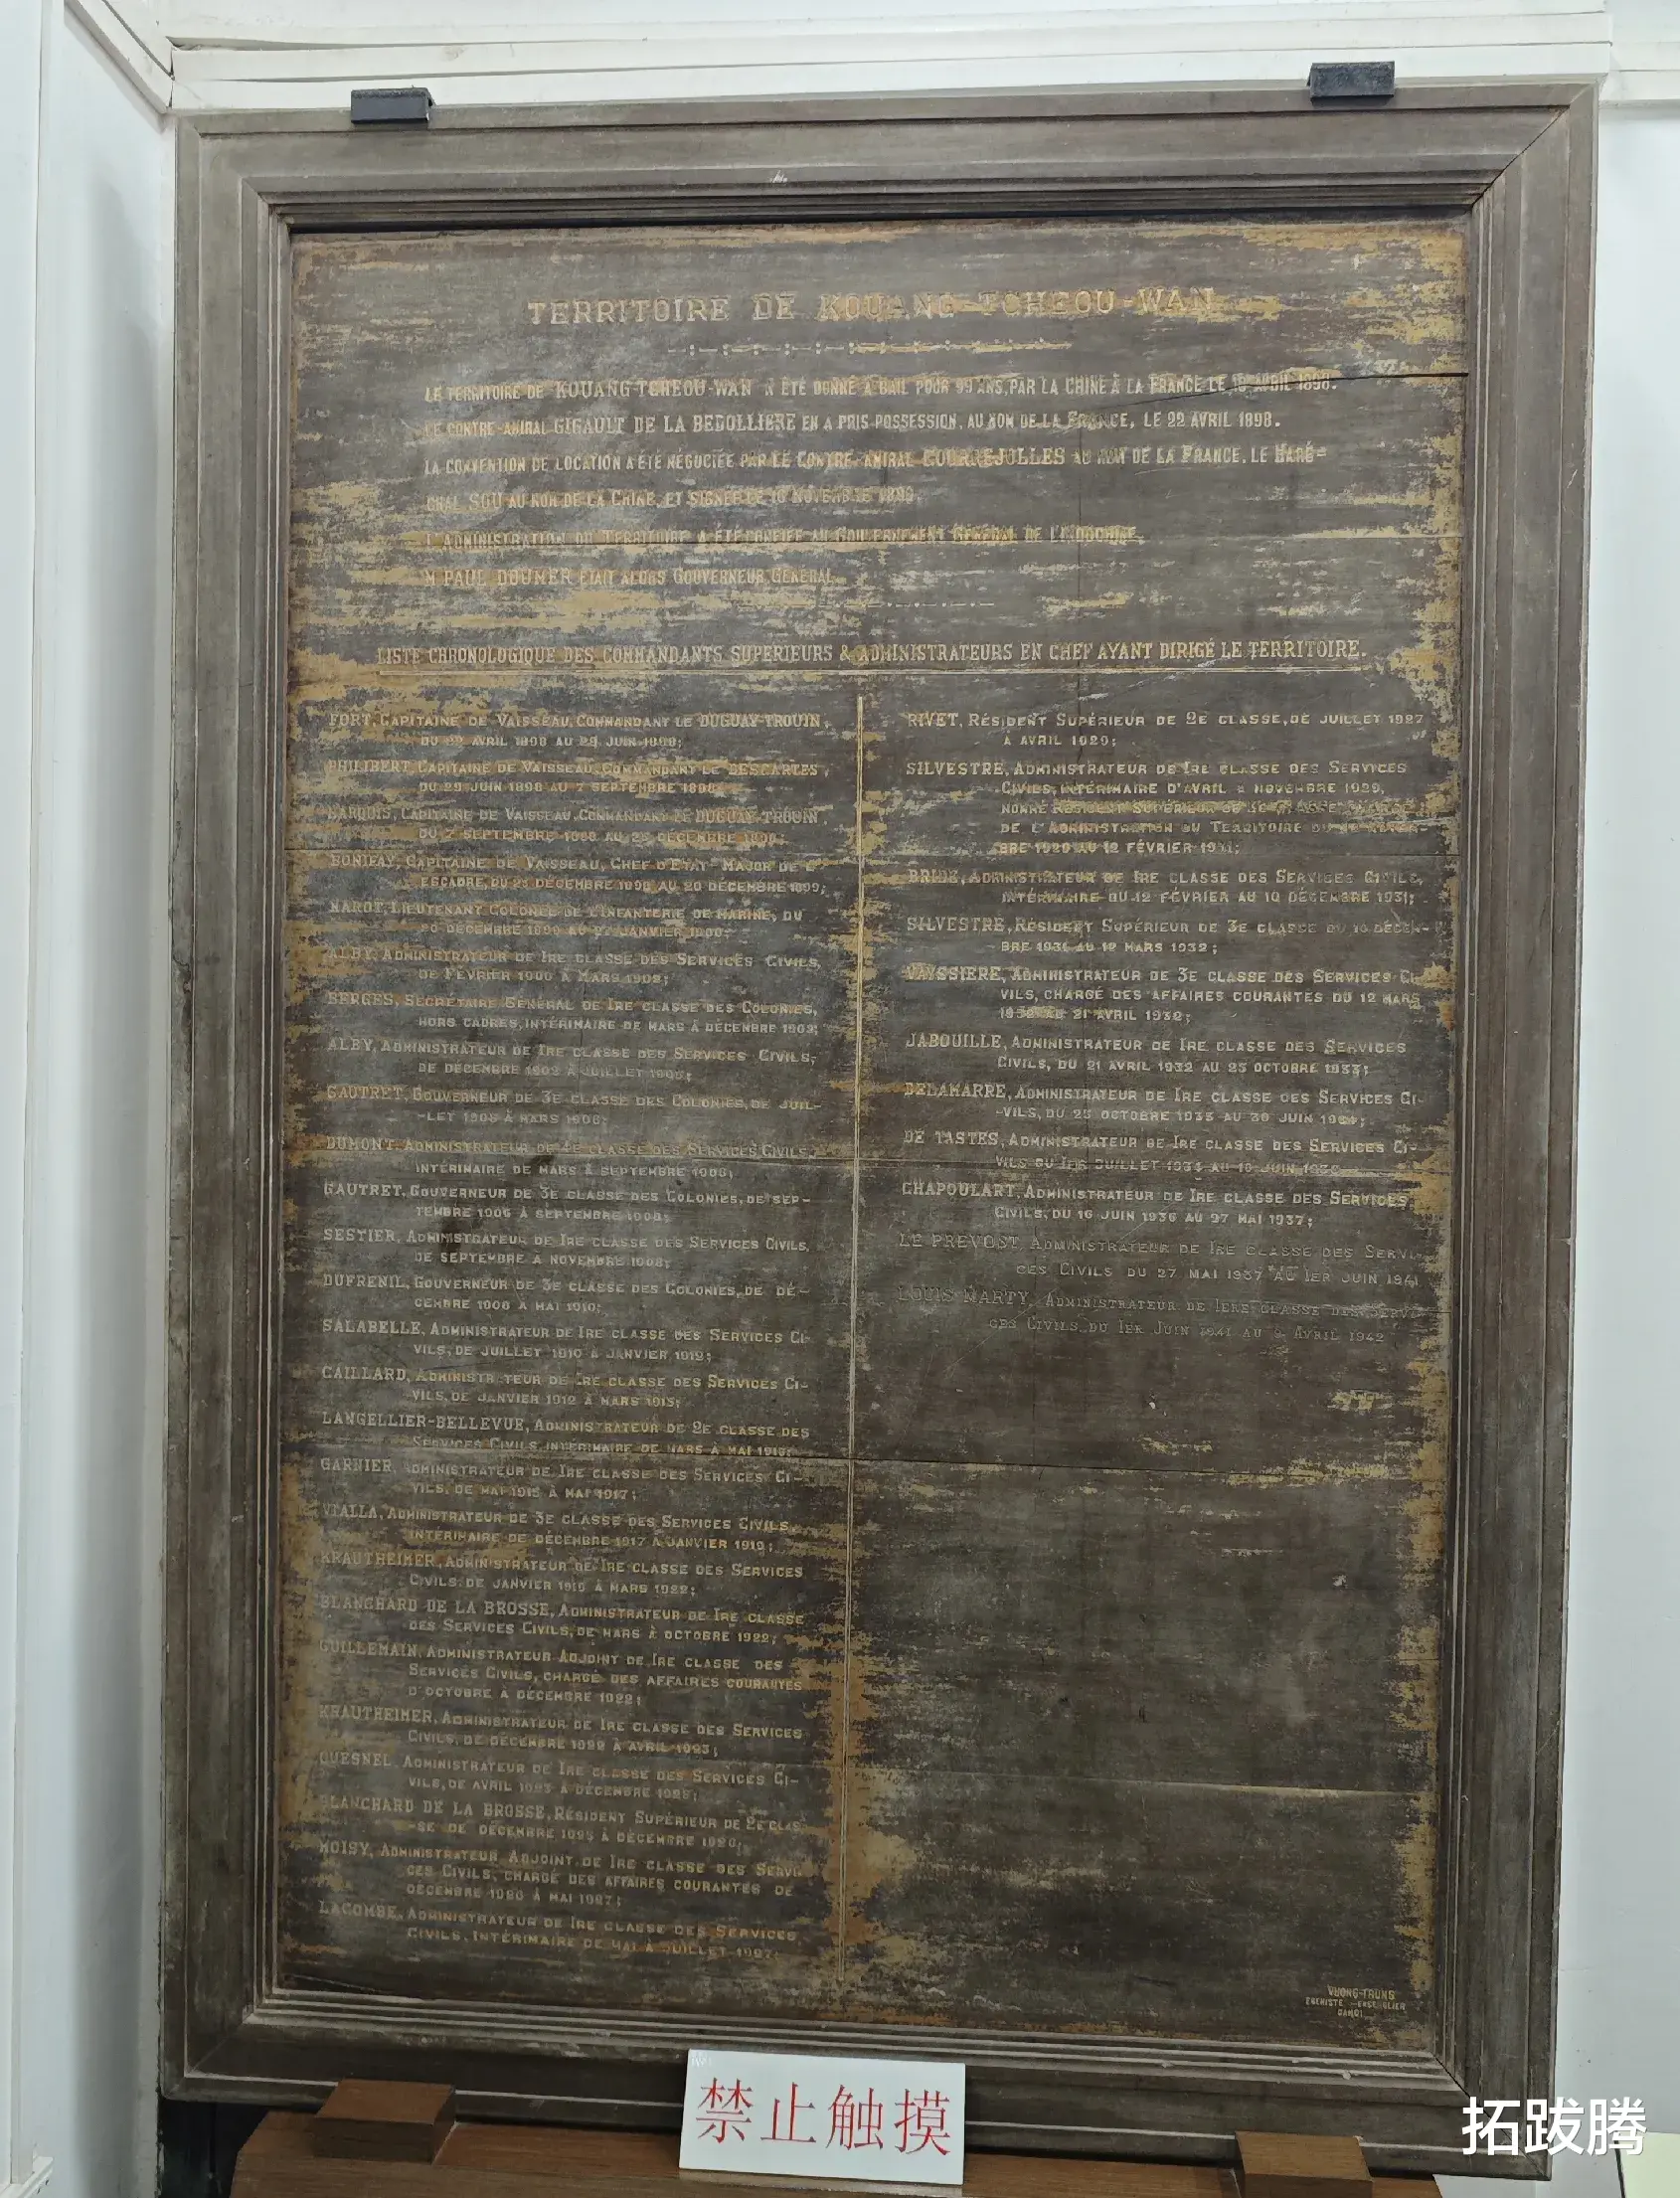 TERRITOIRE DE KOUANG-TCHEOU-WAN
LE TERRITOIRE DE KOUANG-TCHEOU-WAN A ÉTÉ DONNÉ À BAIL POUR 99 ANS, PAR LA CHINE À LA FRANCE LE AVRIL 1898.
LE CONTRE-AMIRAL GIGAULT DE LA BEDOLLIERE EN A PRIS POSSESSION, AU NOM DE LA FRANCE, LE 22 AVRIL 1898.
LA CONVENTION DE LOCATION A ÉTÉ NÉGOCIÉE PAR LE CONTRE-AMIRAL COURREJOLLES AU NOM DE LA FRANCE, LE MARÉ=
CHAL SOU AU NOM DE LA CHINE, ET SIGNÉE LE 16 NOVEMBRE 1899.
L'ADMINISTRATION DU TERRITOIRE A ÉTÉ CONFIÉE AU GOUVERNEMENT GÉNÉRAL DE L'INDOCHINE.
M PAUL DOUMER ÉTAIT ALORS GOUVERNEUR GÉNÉRAL
LISTE CHRONOLOGIQUE DES COMMANDANTS SUPÉRIEURS & ADMINISTRATEURS EN CHEF AYANT DIRIGÉ LE TERRITOIRE.
FORT, CAPITAINE DE VAISSEAU, COMMANDANT LE DUGUAY-TROUIN,
DU 22 AVRIL 1898 AU 29 JUIN 1898;
PHILIBERT, CAPITAINE DE VAISSEAU, COMMANDANT LE DESCARTES,
DU 29 JUIN 1898 AU 7 SEPTEMBRE 1898
MARQUIS, CAPITAINE DE VAISSEAU, COMMANDANT LE DUGUAY-TROUIN,
DU 7 SEPTEMBRE 1898 AU DÉCEMBRE 1898;
BONIFAY, CAPITAINE DE VAISSEAU, CHEF D'ETAT-MAJOR DE L'
ESCADRE, DU DÉCEMBRE 1898 AU 20 DÉCEMBRE 1899;
MAROT, LIEUTENANT COLONEL DE L'INFANTERIE DE MARINE, DU
20 DÉCEMBRE 1899 AU 27 JANVIER 1900;
ALBY, ADMINISTRATEUR DE 1RE CLASSE DES SERVICES CIVILS,
DE FÉVRIER 1900 À MARS 1902;
BERGES, SECRÉTAIRE GÉNÉRAL DE 1RE CLASSE DES COLONIES,
HORS CADRES, INTÉRIMAIRE DE MARS À DÉCEMBRE 1902;
ALBY, ADMINISTRATEUR DE 1RE CLASSE DES SERVICES CIVILS,
DE DÉCEMBRE 1902 À JUILLET;
GAUTRET, GOUVERNEUR DE 3E CLASSE DES COLONIES, DE JUIL-
-LET À MARS 1906;
DUMONT, ADMINISTRATEUR DE 4E CLASSE DES SERVICES CIVILS,
INTÉRIMAIRE DE MARS À SEPTEMBRE 1906;
GAUTRET, GOUVERNEUR DE 3E CLASSE DES COLONIES, DE SEP-
TEMBRE 1906 À SEPTEMBRE 1908;
SESTIER, ADMINISTRATEUR DE 1RE CLASSE DES SERVICES CIVILS,
DE SEPTEMBRE À NOVEMBRE 1908;
DUFRENIL, GOUVERNEUR DE 3E CLASSE DES COLONIES, DE DÉ-
CEMBRE 1908 À MAI 1910;
SALABELLE, ADMINISTRATEUR DE 1RE CLASSE DES SERVICES CI-
VILS, DE JUILLET 1910 À JANVIER 1912;
CAILLARD, ADMINISTRATEUR DE 1RE CLASSE DES SERVICES CI-
VILS, DE JANVIER 1912 À MARS 1915;
LANGELLIER-BELLEVUE, ADMINISTRATEUR DE 2E CLASSE DES
SERVICES CIVILS, INTÉRIMAIRE DE MARS À MAI 1915;
GARNIER, ADMINISTRATEUR DE 1RE CLASSE DES SERVICES CI-
VILS, DE MAI 1915 À MAI 1917;
VIALLA, ADMINISTRATEUR DE 3E CLASSE DES SERVICES CIVILS,
INTÉRIMAIRE DE DÉCEMBRE 1917 À JANVIER 1919;
KRAUTHEIMER, ADMINISTRATEUR DE 1RE CLASSE DES SERVICES
CIVILS, DE JANVIER 1919 À MARS 1922;
BLANCHARD DE LA BROSSE, ADMINISTRATEUR DE 1RE CLASSE
DES SERVICES CIVILS, DE MARS À OCTOBRE 1922;
GUILLEMAIN, ADMINISTRATEUR ADJOINT DE 1RE CLASSE DES
SERVICES CIVILS, CHARGÉ DES AFFAIRES COURANTES
D'OCTOBRE À DÉCEMBRE 1922;
KRAUTHEIMER, ADMINISTRATEUR DE 1RE CLASSE DES SERVICES
CIVILS, DE DÉCEMBRE 1922 À AVRIL 1923;
QUESNEL, ADMINISTRATEUR DE 1RE CLASSE DES SERVICES CI-
VILS, DE AVRIL 1923 À DÉCEMBRE 1925;
BLANCHARD DE LA BROSSE, RÉSIDENT SUPÉRIEUR DE 2E CLAS-
-SE DE DÉCEMBRE 1925 À DÉCEMBRE 1926;
MOISY, ADMINISTRATEUR ADJOINT DE 1RE CLASSE DES SERVI-
CES CIVILS, CHARGÉ DES AFFAIRES COURANTES DE
DÉCEMBRE 1926 À MAI 1927;
LACOMBE, ADMINISTRATEUR DE 1RE CLASSE DES SERVICES
CIVILS, INTÉRIMAIRE DE MAI À JUILLET 1927;
RIVET, RÉSIDENT SUPÉRIEUR DE 2E CLASSE, DE JUILLET 1927
À AVRIL 1929;
SILVESTRE, ADMINISTRATEUR DE 1RE CLASSE DES SERVICES
CIVILS, INTÉRIMAIRE D'AVRIL À NOVEMBRE 1929,
NOMMÉ RÉSIDENT SUPÉRIEUR DE 3E CLASSE
DE L'ADMINISTRATION DU TERRITOIRE DU NOVEM-
BRE 1929 AU 12 FÉVRIER 1931;
BRIDE, ADMINISTRATEUR DE 1RE CLASSE DES SERVICES CIVILS,
INTÉRIMAIRE DU 12 FÉVRIER AU 10 DÉCEMBRE 1931;
SILVESTRE, RÉSIDENT SUPÉRIEUR DE 3E CLASSE DU 10 DÉCEM-
BRE 1931 AU 12 MARS 1932;
VAYSSIERE, ADMINISTRATEUR DE 3E CLASSE DES SERVICES CI-
VILS, CHARGÉ DES AFFAIRES COURANTES DU 12 MARS
1932 AU 21 AVRIL 1932;
JABOUILLE, ADMINISTRATEUR DE 1RE CLASSE DES SERVICES
CIVILS, DU 21 AVRIL 1932 AU 23 OCTOBRE 1933;
DELAMARRE, ADMINISTRATEUR DE 1RE CLASSE DES SERVICES CI-
-VILS, DU 23 OCTOBRE 1933 AU 30 JUIN 1934;
DE TASTES, ADMINISTRATEUR DE 1RE CLASSE DES SERVICES CI-
VILS DU 1ER JUILLET 1934 AU JUIN 1936
CHAPOULART, ADMINISTRATEUR DE 1RE CLASSE DES SERVICES
CIVILS, DU 16 JUIN 1936 AU 27 MAI 1937;
LE PREVOST, ADMINISTRATEUR DE 1RE CLASSE DES SERVI-
CES CIVILS DU 27 MAI 1937 AU 1ER JUIN 1941
LOUIS MARTY, ADMINISTRATEUR DE 1ERE CLASSE DES SERVI-
CES CIVILS, DU 1ER JUIN 1941 AU AVRIL 1942
VUONG-TRUNG
EBENISTE
禁止触摸
拓跋腾